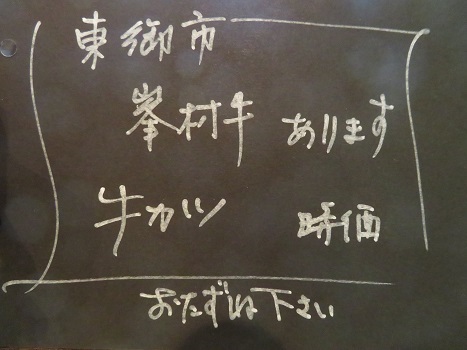 東御市
峯村牛 あります
牛カツ 時価
おたずね下さい